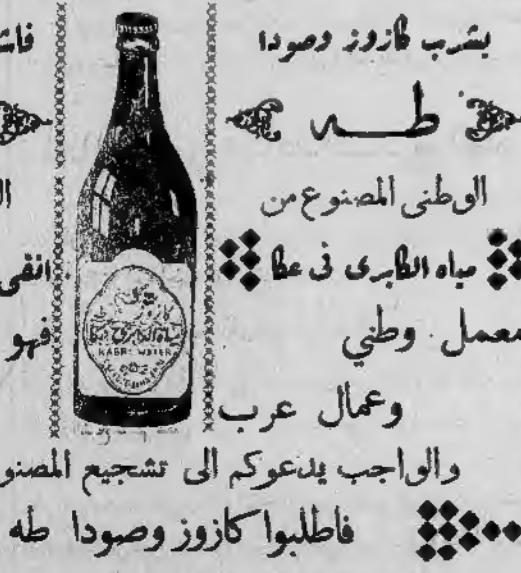 بشرب كازوز وصودا
طه
الوطني المصنوع من
مياه الكابري في عكا
معمل وطني
وعمال عرب
والواجب يدعوكم الى تشجيع المصنو
فاطلبوا كازوز وصودا طه
كازوز
مياه الكابري عكا
KABRI WATER
فاش
ال
انقى
فهو